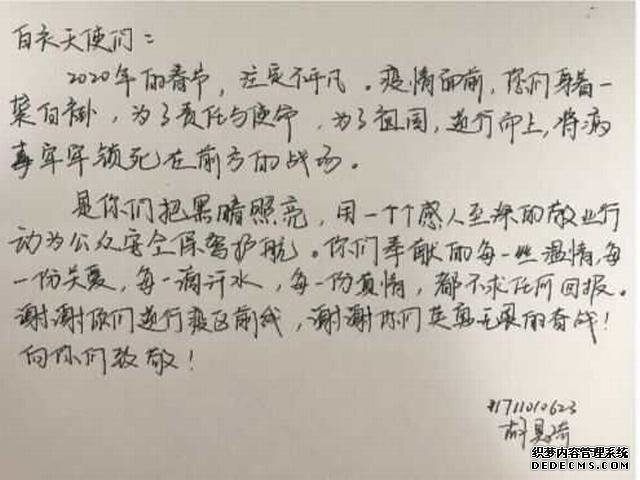 白衣天使们：
2020年的春节，注定不平凡。疫情面前，你们身着一
袭白褂，为了责任与使命，为了祖国，逆行而上，将病
毒牢牢锁死在前方的战场。
是你们把黑暗照亮，用一个个感人至深的敬业行
动为公众安全保驾护航。你们奉献的每一丝温情，每
一份关爱，每一滴汗水，每一份真情，都不求任何回报。
谢谢你们逆行疫区前线，谢谢你们英勇无畏的奋战！
向你们致敬！
1711010623
胡
织梦内容管理系统
DEDECMS.COM